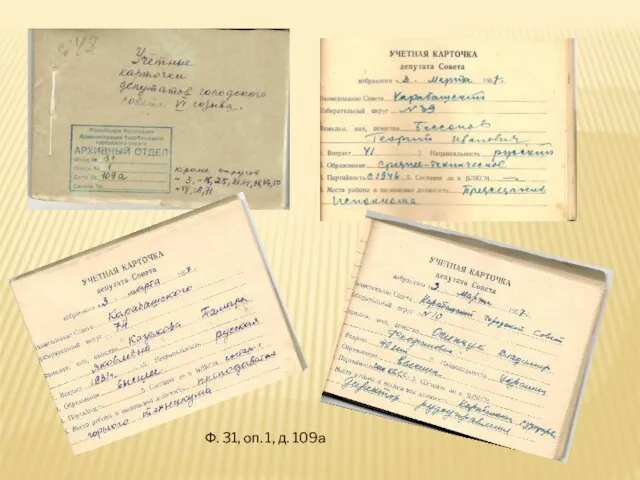 642
Учётные
карточки
депутатов городского
совета VI созыва.
Российская Федерация
Администрация Карабашского
городского округа
АРХИВНЫЙ ОТДЕЛ
Фонд № 31
Опись № 1
Дело № 109а
кроме округов
УЧЕТНАЯ КАРТОЧКА
депутата Совета
избранного 3. марта 1957г.
Наименование Совета Карабашский
Избирательный округ № 39
Фамилия, имя, отчество Бессонов
Георгий Иванович
1. Возраст 41 2. Национальность русский
3. Образование Средне-техническое
4. Партийность с 1946 5. Состоит ли в ВЛКСМ —
6. Место работы и занимаемая должность Председатель
Исполкома
УЧЕТНАЯ КАРТОЧКА
депутата Совета
избранного 3. марта 1957г.
Наименование Совета Карабашского
Избирательный округ 74
Фамилия, имя, отчество Казакова Тамара
Яковлевна
1. Возраст 1931г. 2. Национальность русская
3. Образование высшее
4. Партийность 5. Состоит ли в ВЛКСМ сост.
6. Место работы и занимаемая должность преподаватель
горного техникума
УЧЕТНАЯ КАРТОЧКА
депутата Совета
избранного 3 Марта 1957г.
Наименование Совета Карабашский городской Совет
Избирательный округ №10
Фамилия, имя, отчество Владимир
1. Возраст 2. Национальность Украинец
3. Образование Высшее
4. Партийность 5. Состоит ли в ВЛКСМ
6. Место работы и занимаемая должность Карабашское
Директор рудоуправления
Ф. 31, оп. 1, д. 109а